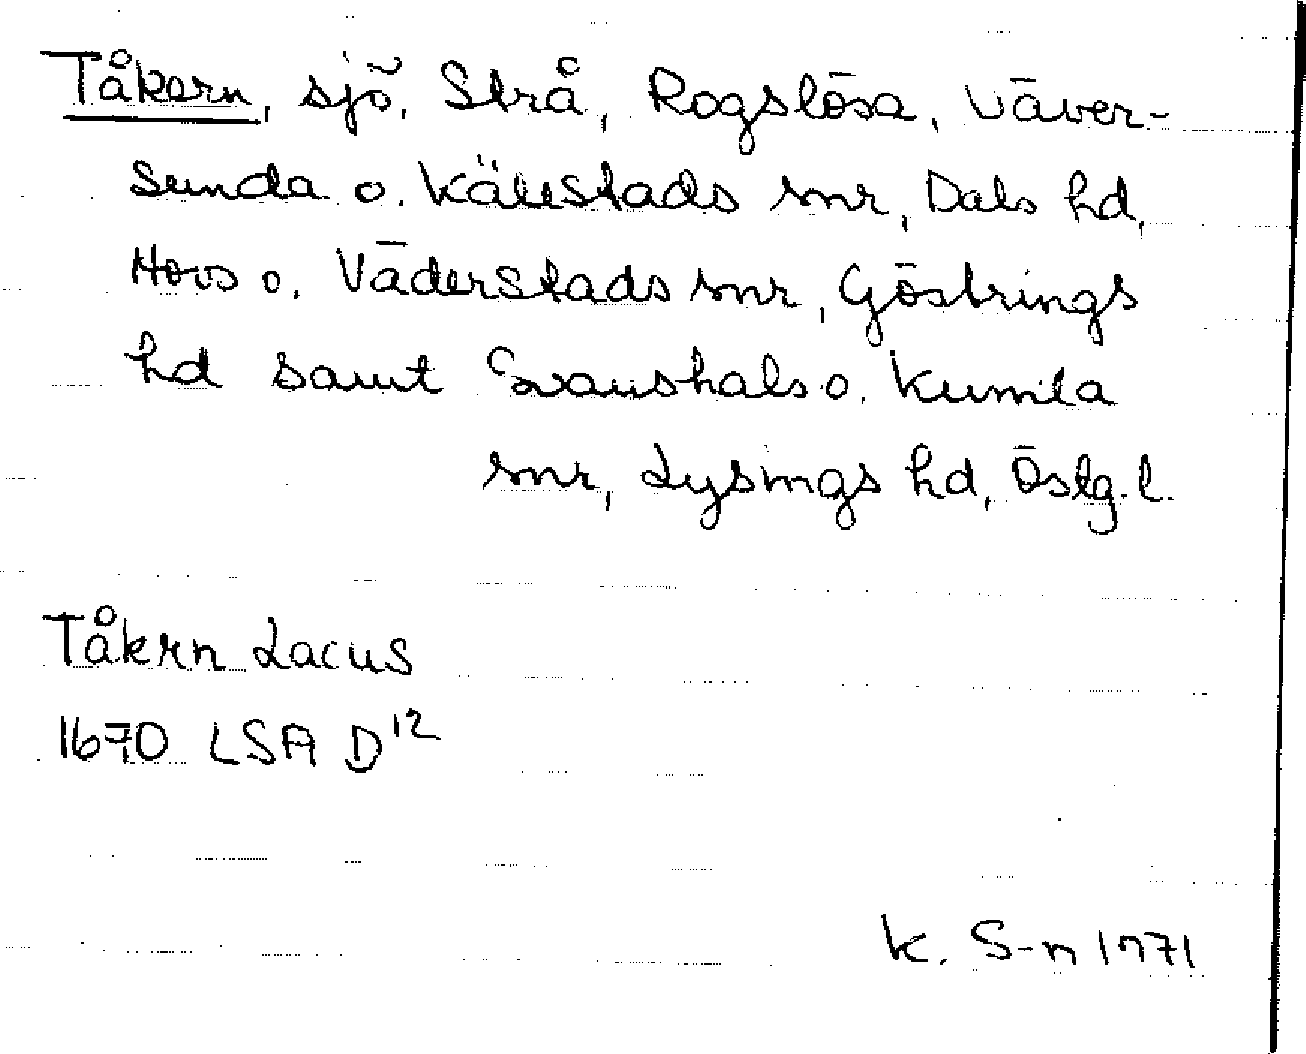 Tåkern, sjö, Strå, Rogslösa, Väver-
sunda o. Källstads snr, Dals hd,
Hovs o. Väderstads snr, Göstrings
hd samt Svanshals o. Kumla
snr, Lysings hd, Östg. l.
Tåkrn Lacus
1670 LSA D12
K. S-n 1971